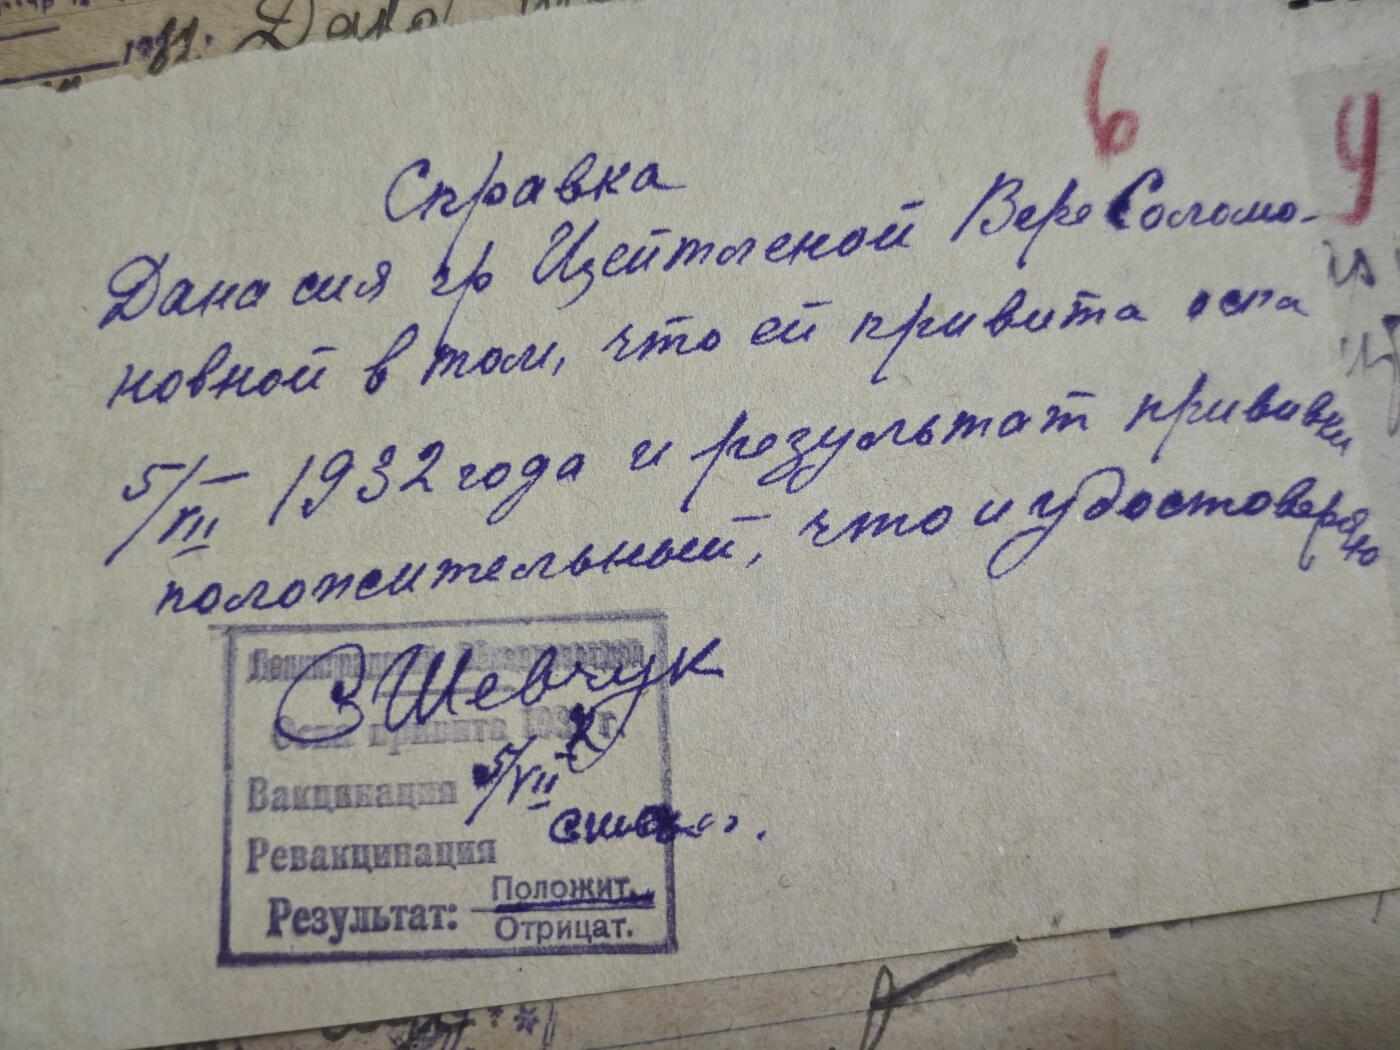 Дана
Справка
6
Ч
Дана сия гр Цейтленой Вере Соломо-
новной в том, что ей привита оспа
5/VII 1932 года и результат прививки
положительный, что и удостоверяю
Ленинградский
ЗШевчук
Оспа привита 193 г.
Вакцинация 5/VII
Ревакцинация
Результат: Положит.
Отрицат.